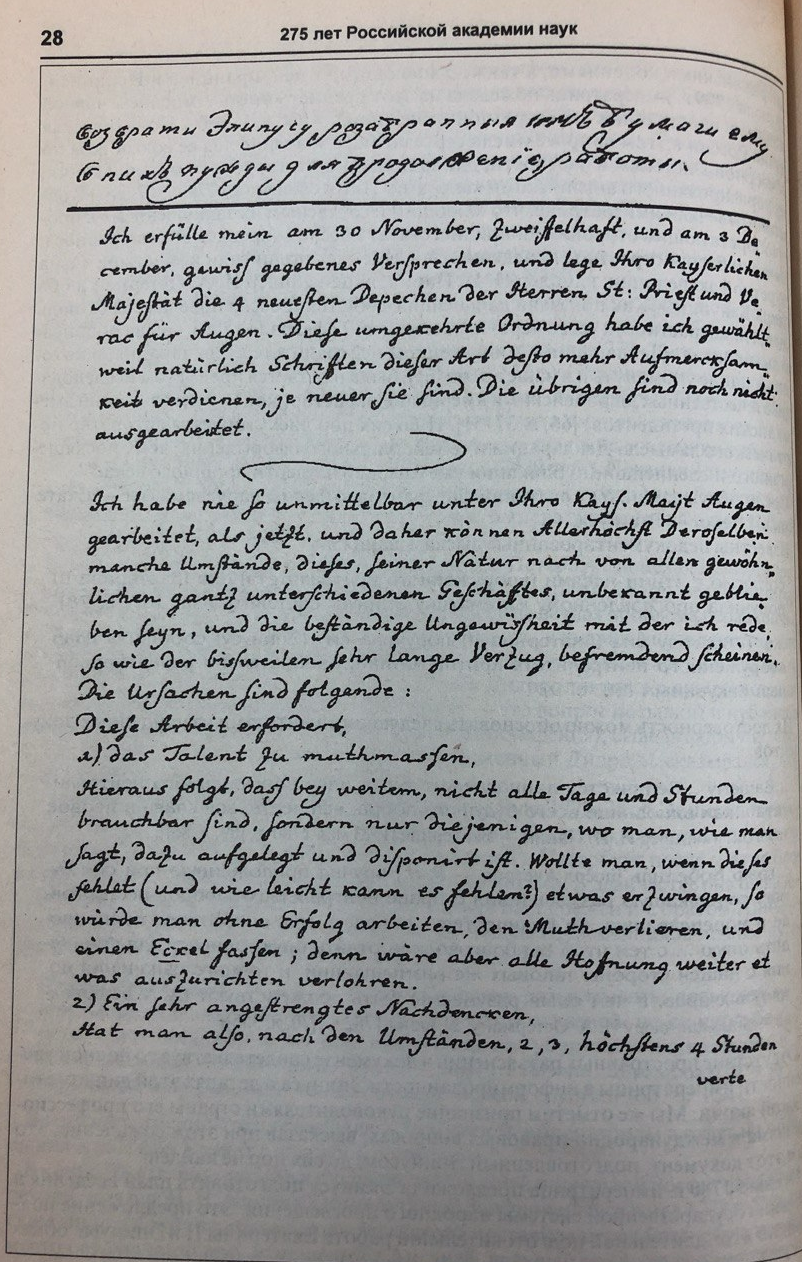 28
275 лет Российской академии наук
возврати Эпинусу разобранныя имъ бумаги ему
въ нихъ нужды для продолженiя работы.
Ich erfülle mein am 30 November, zweiffelhaft, und am 3 De„
cember, gewiss gegebenes Versprechen, und lege Ihro Kayserlichen
Majestät die 4 neuesten Depechen der Herren St: Priest und Ve„
rac für Augen. Diese umgekehrte Ordnung habe ich gewählt,
weil natürlich Schrifften dieser Art desto mehr Aufmercksam„
keit verdienen, je neuer sie sind. Die übrigen sind noch nicht
ausgearbeitet.
Ich habe nie so unmittelbar unter Ihro Kays. Majt Augen
gearbeitet, als jetzt, und daher können Allerhöchst Deroselben
manche Umstände, dieses, seiner Natur nach von allen gewöhn„
lichen gantz unterschiedenen Geschäfftes, unbekannt geblie„
ben seyn, und die beständige Ungewissheit mit der ich rede,
so wie der bissweilen sehr lange Verzug, befremdend scheinen.
Die Ursachen sind folgende :
Diese Arbeit erfordert,
1) das Talent zu muthmassen,
Hieraus folgt, dass bey weitem, nicht alle Tage und Stunden
brauchbar sind, sondern nur diejenigen, wo man, wie man
sagt, dazu aufgelegt und disponirt ist. Wollte man, wenn dieses
fehlet (und wie leicht kann es fehlen?) etwas erzwingen, so
würde man ohne Erfolg arbeiten, den Muth verlieren, und
einen Eckel fassen ; denn wäre aber alle Hoffnung weiter et
was auszurichten verlohren.
2) Ein sehr angestrengtes Nachdencken,
Hat man also, nach den Umständen, 2, 3, höchstens 4 Stunden
verte